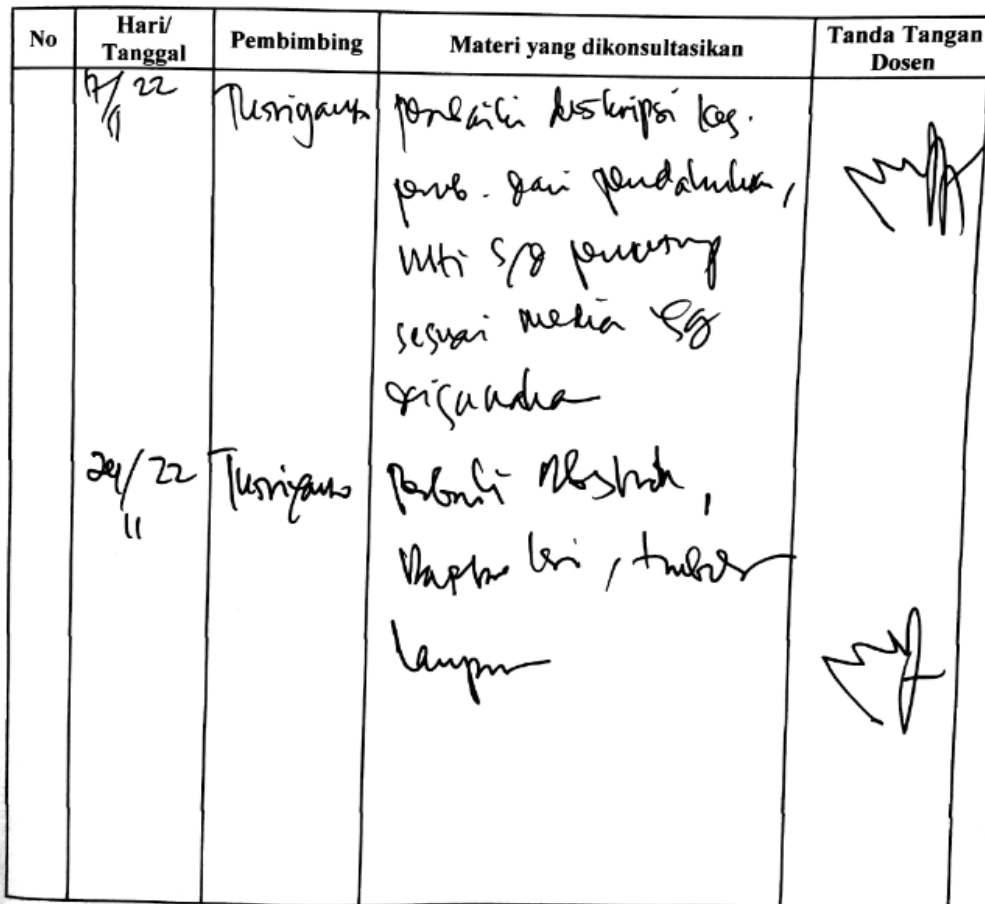 No Hari/ Pembimbing Materi yang dikonsultasikan Tanda Tangan
Tanggal Dosen
17/11 22 Tusriyanto perbaiki deskripsi keg.
pemb. dari pendahuluan,
inti s/d penutup
sesuai media yg
digunakan
24/11 22 Tusriyanto Perbaiki Abstrak,
Daftar isi,